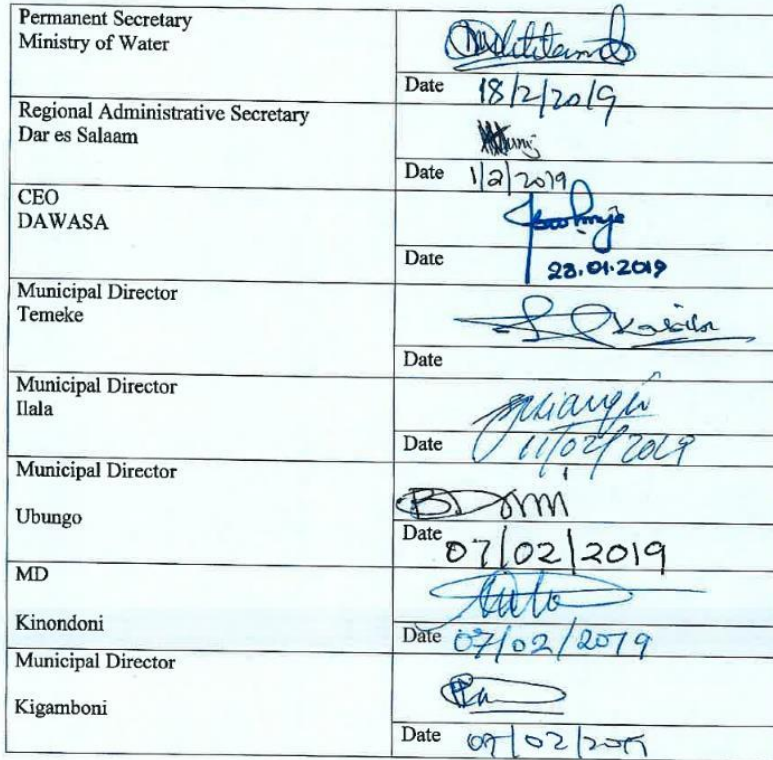 Permanent Secretary
Ministry of Water
Date 18/2/2019
Regional Administrative Secretary
Dar es Salaam
Date 1/2/2019
CEO
DAWASA
Date 28.01.2019
Municipal Director
Temeke
Date
Municipal Director
Ilala
Date 11/02/2019
Municipal Director
Ubungo
Date 07/02/2019
MD
Kinondoni
Date 07/02/2019
Municipal Director
Kigamboni
Date